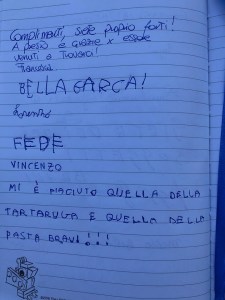 Complimenti, siete proprio forti!
A presto e grazie x essere
venuti a trovarci!
Francesca
BELLA GARCA!
Lorenzo
FEDE
VINCENZO
MI È PIACIUTO QUELLA DELLA
TARTARUGA E QUELLA DELLA
PASTA BRAVI !!!